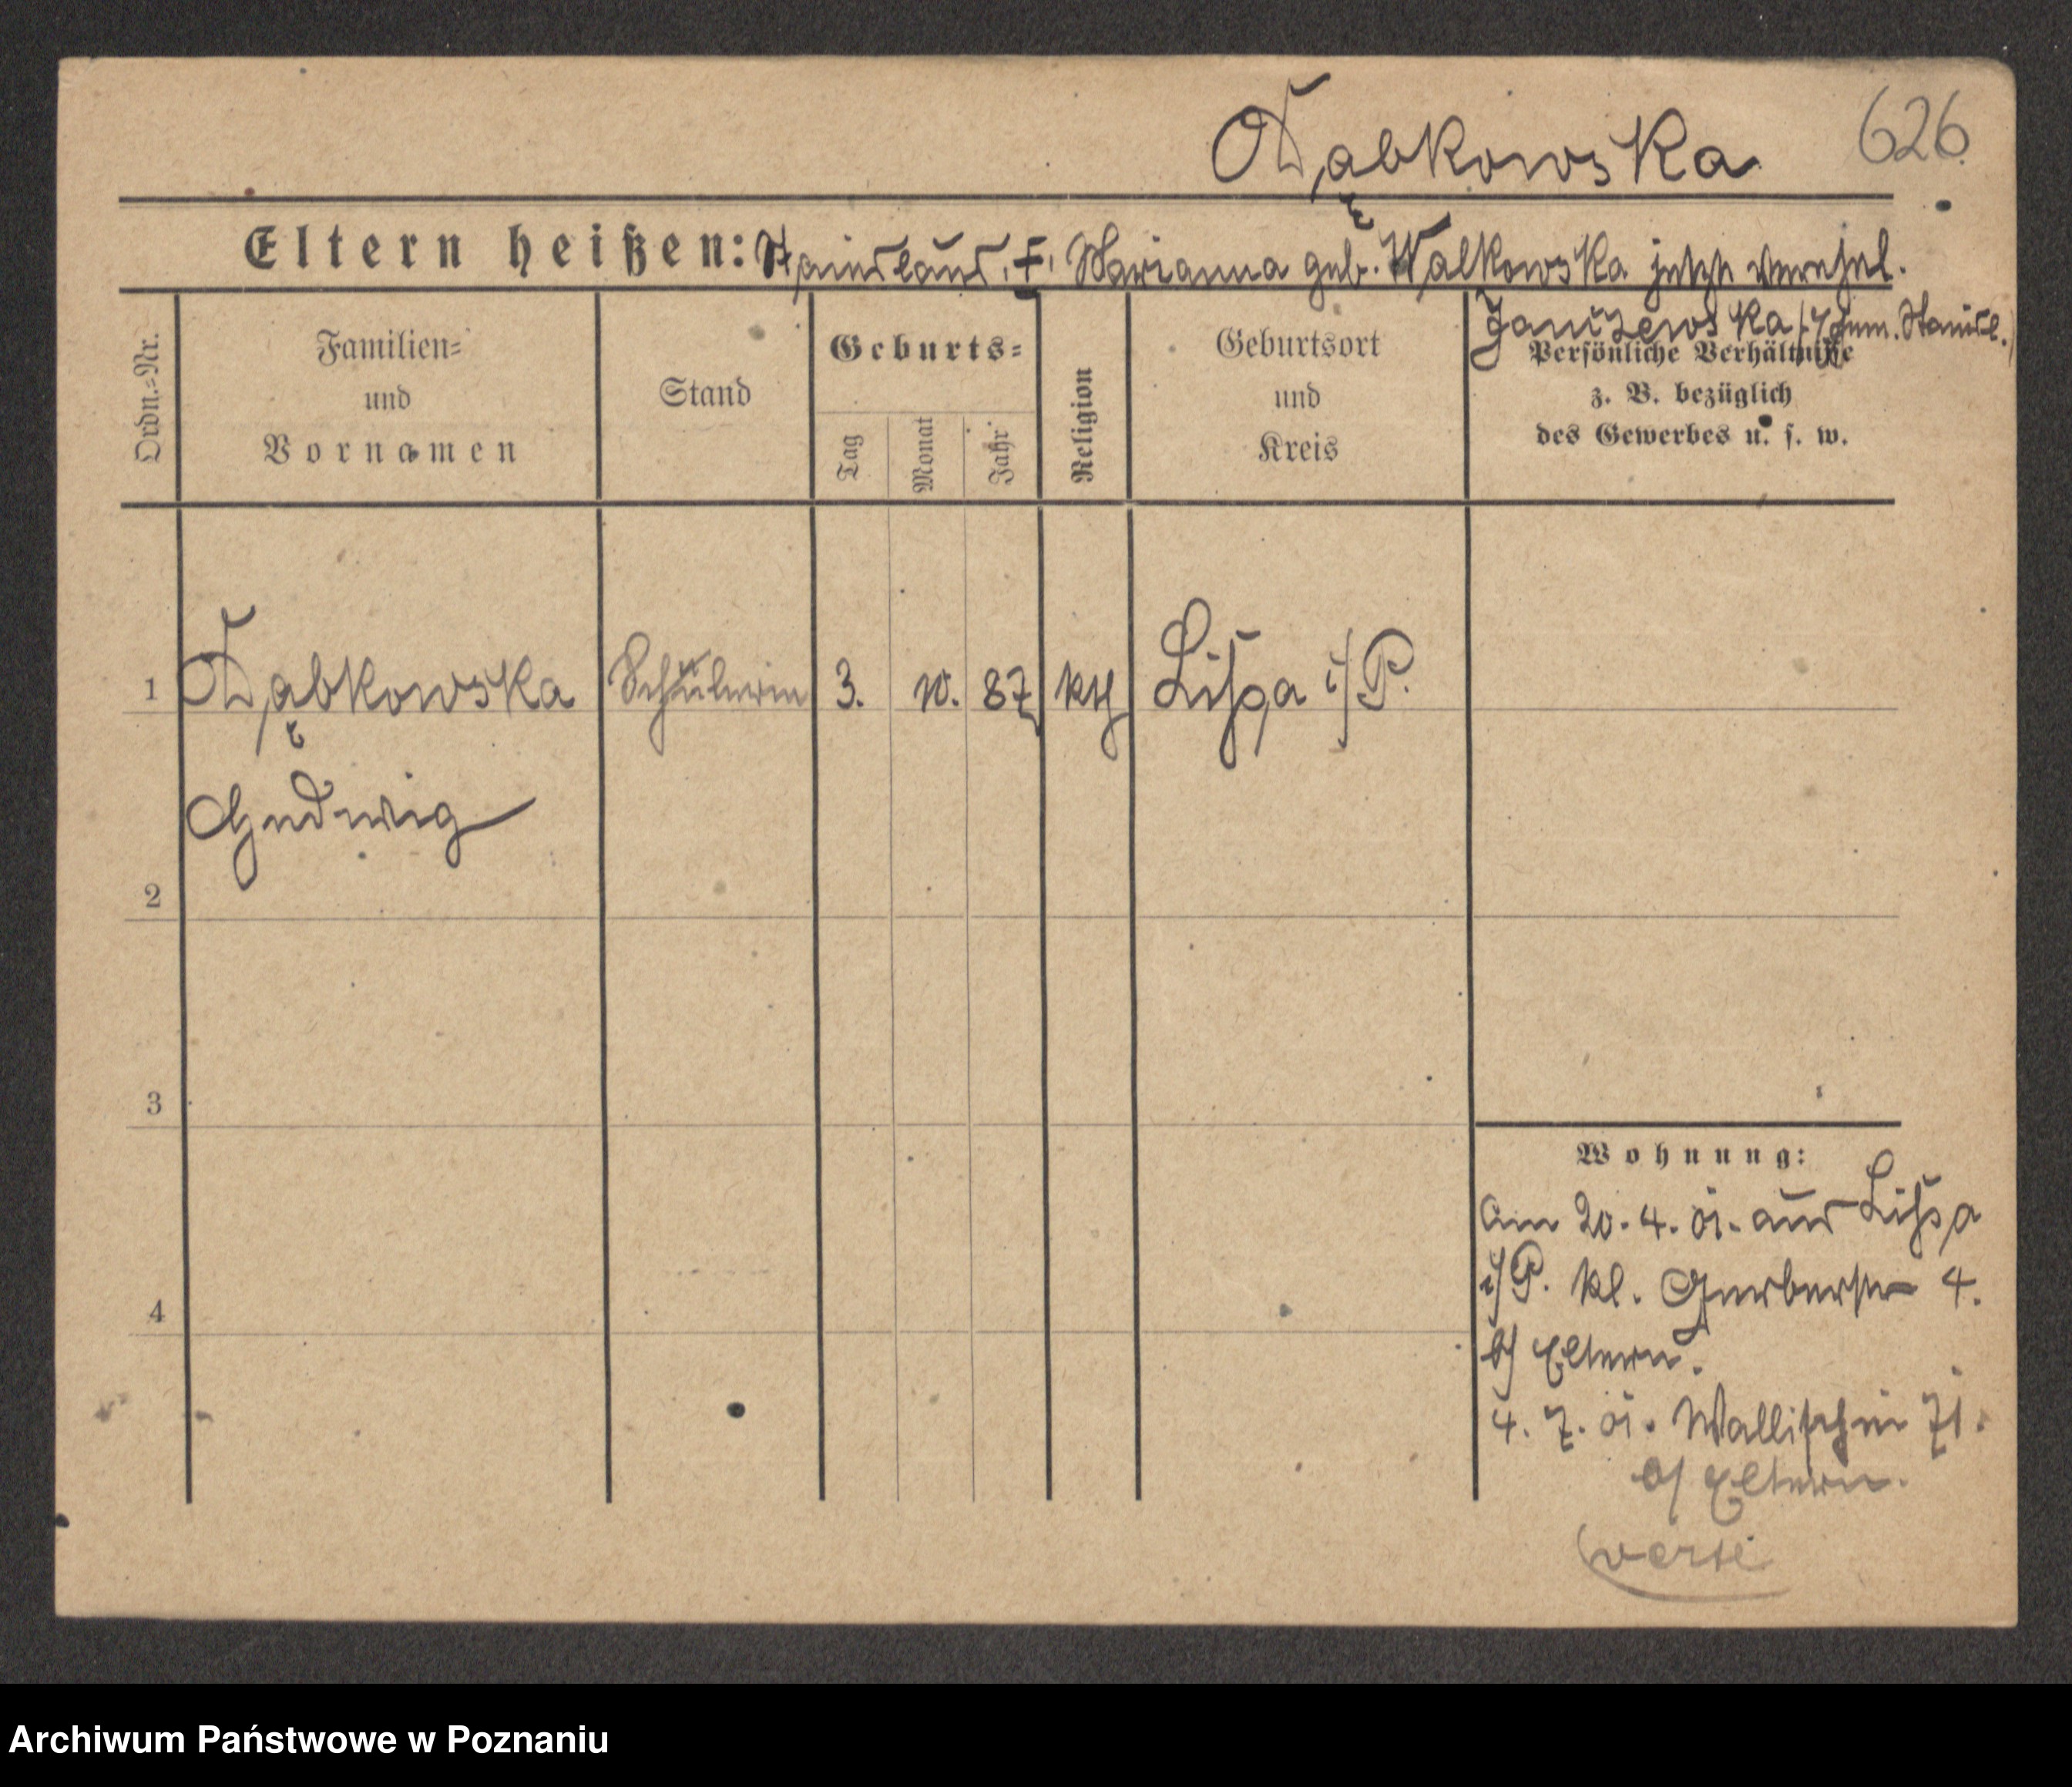 Dąbkowska 626.
Eltern heißen: Stanislaus, †, Marianna geb. Walkowska jetzt verehel.
Janiszewska (Ehem. Stanisl.)
Ordn.=Nr.
Familien=
und
Vornamen
Stand
Geburts=
Tag
Monat
Jahr
Religion
Geburtsort
und
Kreis
Persönliche Verhältnisse
z. B. bezüglich
des Gewerbes u. s. w.
1 Dąbkowska Schülerin 3. 10. 87 kth Lissa i/P.
Hedwig
2
3
4
Wohnung:
Am 20.4.01. aus Lissa
i/P. kl. Gerberstr 4.
b/ Eltern.
4.7.01. Wallischei 71.
b/ Eltern.
verte
Archiwum Państwowe w Poznaniu